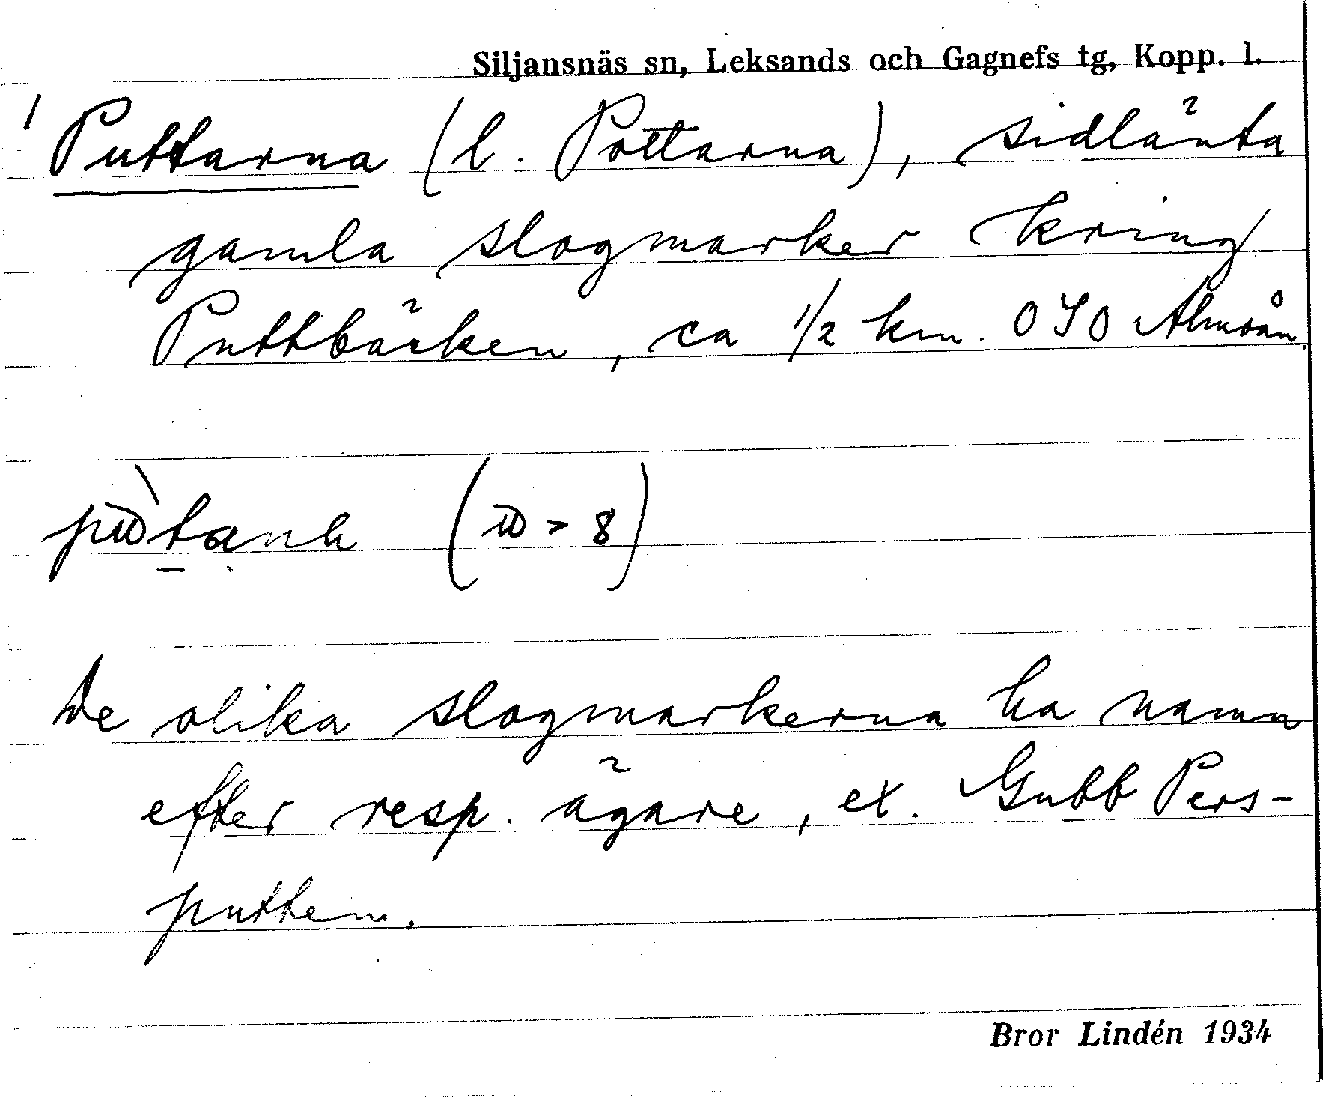 Siljansnäs sn, Leksands och Gagnefs tg, Kopp. l.
Puttarna (l. Pottarna), sidlänta
gamla slogmarker kring
Puttbäcken, ca 1/2 km. OSO Almoån.
(  > 8)
De olika slogmarkerna ha namn
efter resp. ägare, ex. Gubb Pers-
putten.
Bror Lindén 1934